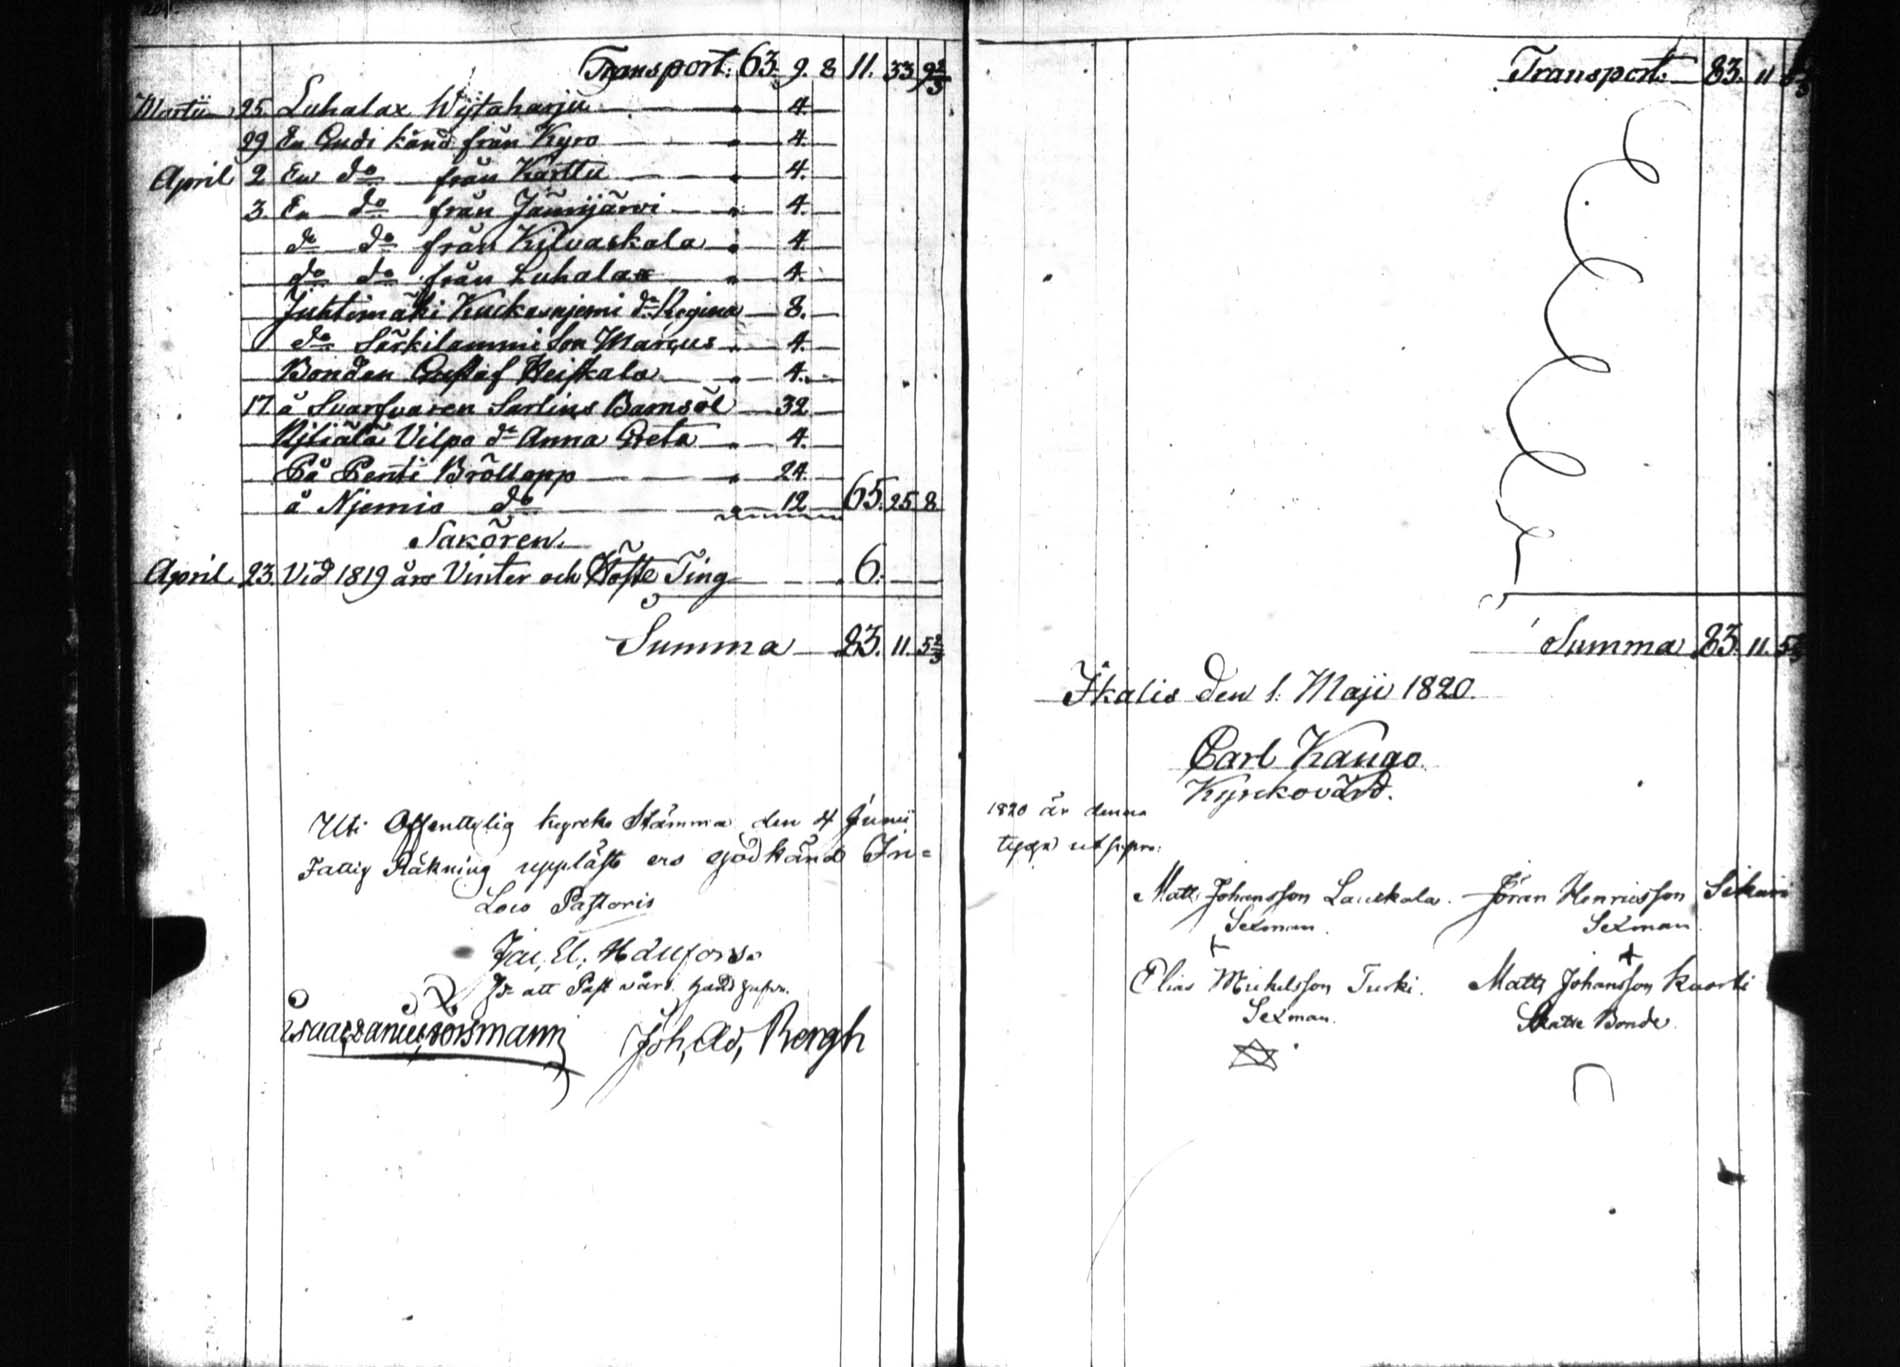 Transport: 63. 9. 8 11. 33 9 2/3
Martii 25 Luhalax Wijtaharju 4.
29 En Gudi känd från Kyro 4.
April 2 En do från Karttu 4.
3 En do från Jämijärvi 4.
do do från Kilvaskala 4.
do do från Luhalax 4.
Juhtimäki Kuckasnjemi dr Regina 8.
do Särkilammi Son Marcus 4.
Bonden Gustaf Heiskala 4.
17. å Svarfvaren Sarlins Barnsöl 32
Njliälä Vilpo dr Anna Greta 4.
På Penti Bröllopp 24.
å Njemis do 12 65. 25. 8
Sakören.
April 23. Vid 1819 års Vinter och Höste Ting 6.
Summa 83. 11. 5 2/3
Uti Offenttylig kyrcko Stämma den 4 Junii
Fattig Räkning uppläst ock godkänd In=
Loco Pastoris
Joh, Ad, Bergh
Transport: 83. 11
Summa 83. 11. 5 2/3
Ikalis den 1. Maji 1820.
Carl Kaugo
Kyrckovärd.
1820 är denna
Matts Johansson Lauskala. Jöran Henricsson
Sexman. Sexman.
Elias Mickelsson Turki. Matts Johansson Kuorti
Sexman. Skatte Bonde.